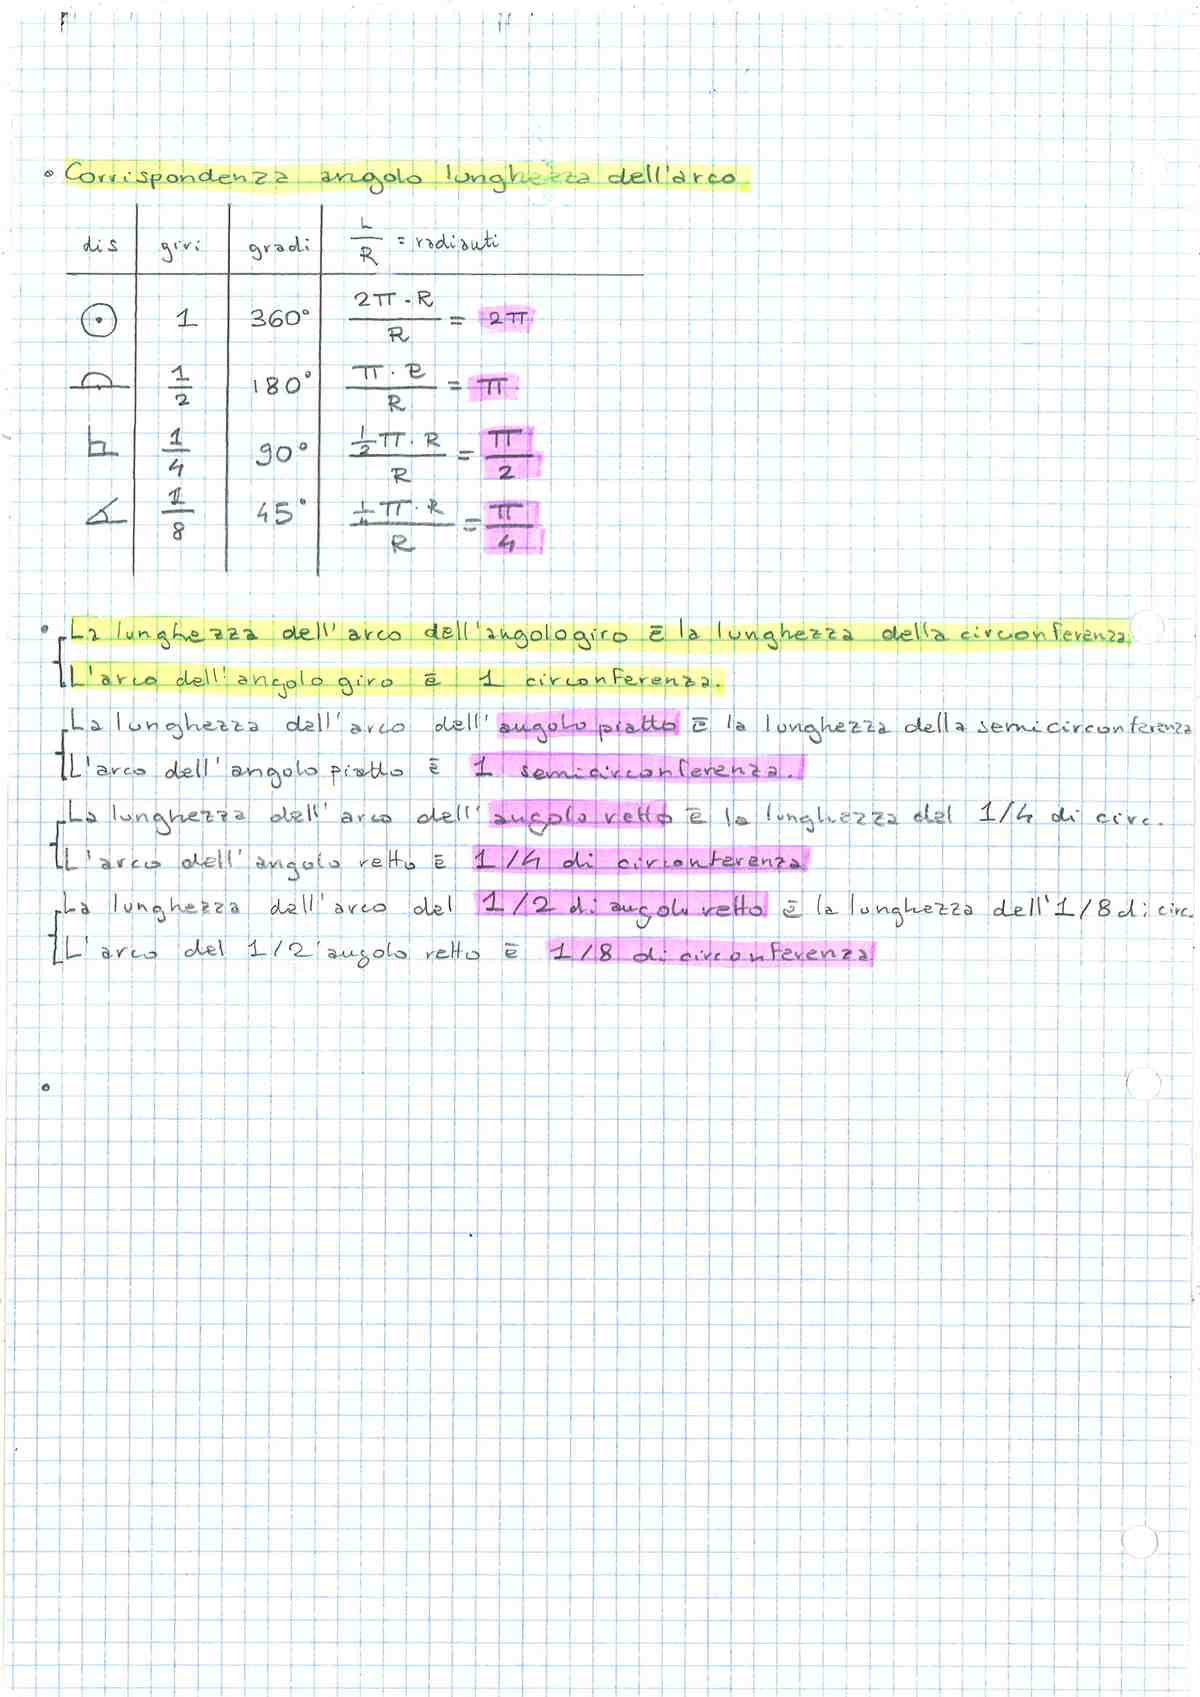 • Corrispondenza angolo lunghezza dell'arco
dis | giri | gradi | L/R = radianti
1 | 360° | 2π·R/R = 2π
1/2 | 180° | π·R/R = π
1/4 | 90° | 1/2 π·R/R = π/2
1/8 | 45° | 1/4 π·R/R = π/4
• La lunghezza dell'arco dell'angolo giro è la lunghezza della circonferenza
L'arco dell'angolo giro è 1 circonferenza.
La lunghezza dell'arco dell'angolo piatto è la lunghezza della semicirconferenza
L'arco dell'angolo piatto è 1 semicirconferenza.
La lunghezza dell'arco dell'angolo retto è la lunghezza del 1/4 di circ.
L'arco dell'angolo retto è 1/4 di circonferenza
La lunghezza dell'arco del 1/2 di angolo retto è la lunghezza dell'1/8 di circ.
L'arco del 1/2 angolo retto è 1/8 di circonferenza
•